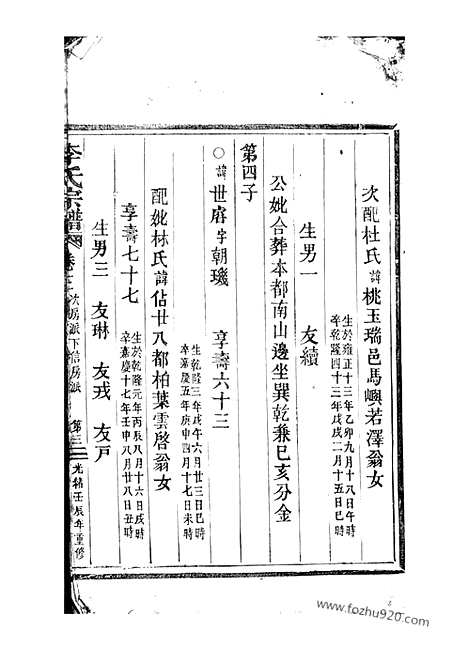 次配杜氏諱桃玉瑞邑馬嶼若澤翁女
生於雍正十三年乙卯九月十八日午時
卒乾隆四十三年戊戌二月十五日巳時
生男一 友續
公妣合葬本都南山邊坐巽乾兼巳亥分金
第四子
○諱世廕字朝璣 享壽六十三
生乾隆三年戊午六月廿三日巳時
卒嘉慶五年庚申四月十七日未時
配妣林氏諱佔廿八都柏葉雲啓翁女
享壽七十七
生於乾隆元年丙辰八月十六日戌時
卒嘉慶十七年壬申八月廿八日丑時
生男三 友琳 友戎 友戸
李氏宗譜 卷 次房派下信房派 第三 光緒壬辰年重修
www.fozhu920.com